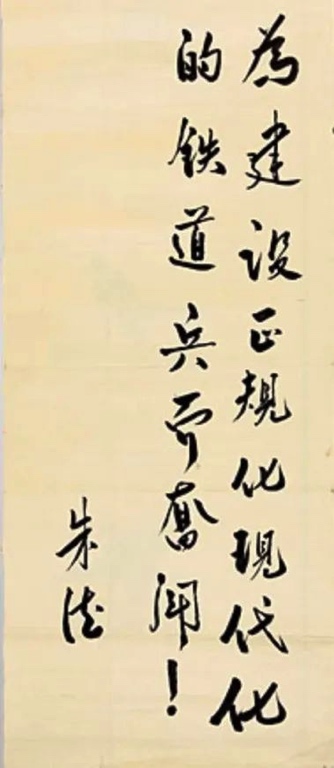 為建設正規化現代化
的鉄道兵而奮鬥！
朱德